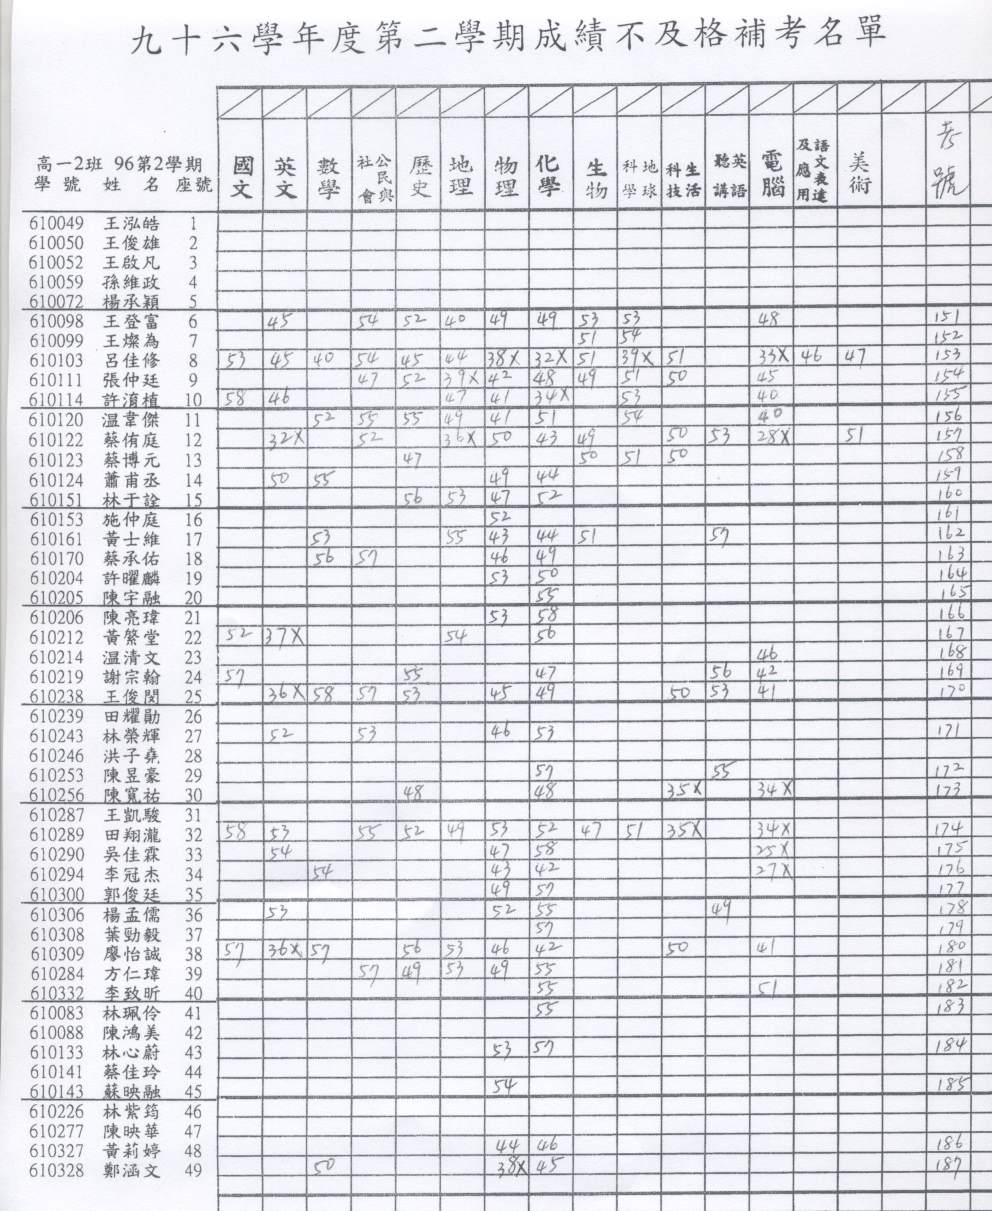 九十六學年度第二學期成績不及格補考名單
高一2班 96第2學期
學號 姓名 座號 國文 英文 數學 公民與社會 歷史 地理 物理 化學 生物 地球科學 生活科技 英語聽講 電腦 語文表達及應用 美術 考號
610049 王泓皓 1
610050 王俊雄 2
610052 王啟凡 3
610059 孫維政 4
610072 楊承穎 5
610098 王登富 6 45 54 52 40 49 49 53 53 48 151
610099 王燦為 7 51 54 152
610103 呂佳修 8 53 45 40 54 45 44 38X 32X 51 39X 51 33X 46 47 153
610111 張仲廷 9 47 52 39X 42 48 49 51 50 45 154
610114 許湞植 10 58 46 47 41 34X 53 40 155
610120 溫韋傑 11 52 55 55 49 41 51 54 40 156
610122 蔡侑庭 12 32X 52 36X 50 43 49 50 53 28X 51 157
610123 蔡博元 13 47 50 51 50 158
610124 蕭甫丞 14 50 55 49 44 159
610151 林于詮 15 56 53 47 52 160
610153 施仲庭 16 52 161
610161 黃士維 17 53 55 43 44 51 57 162
610170 蔡承佑 18 56 57 46 49 163
610204 許曜麟 19 53 50 164
610205 陳宇融 20 55 165
610206 陳亮瑋 21 53 58 166
610212 黃繁堂 22 52 37X 54 56 167
610214 溫清文 23 46 168
610219 謝宗翰 24 57 55 47 56 42 169
610238 王俊閔 25 36X 58 57 53 45 49 50 53 41 170
610239 田耀勛 26
610243 林榮輝 27 52 53 46 53 171
610246 洪子堯 28
610253 陳昱豪 29 57 55 172
610256 陳寬祐 30 48 48 35X 34X 173
610287 王凱駿 31
610289 田翔瀧 32 58 53 55 52 49 53 52 47 51 35X 34X 174
610290 吳佳霖 33 54 47 58 25X 175
610294 李冠杰 34 54 43 42 27X 176
610300 郭俊廷 35 49 57 177
610306 楊孟儒 36 53 52 55 49 178
610308 葉勁毅 37 57 179
610309 廖怡誠 38 57 36X 57 56 53 46 42 50 41 180
610284 方仁瑋 39 57 49 53 49 55 181
610332 李致昕 40 55 51 182
610083 林珮伶 41 55 183
610088 陳鴻美 42
610133 林心蔚 43 53 57 184
610141 蔡佳玲 44
610143 蘇映融 45 54 185
610226 林紫筠 46
610277 陳映華 47
610327 黃莉婷 48 44 46 186
610328 鄭涵文 49 50 38X 45 187